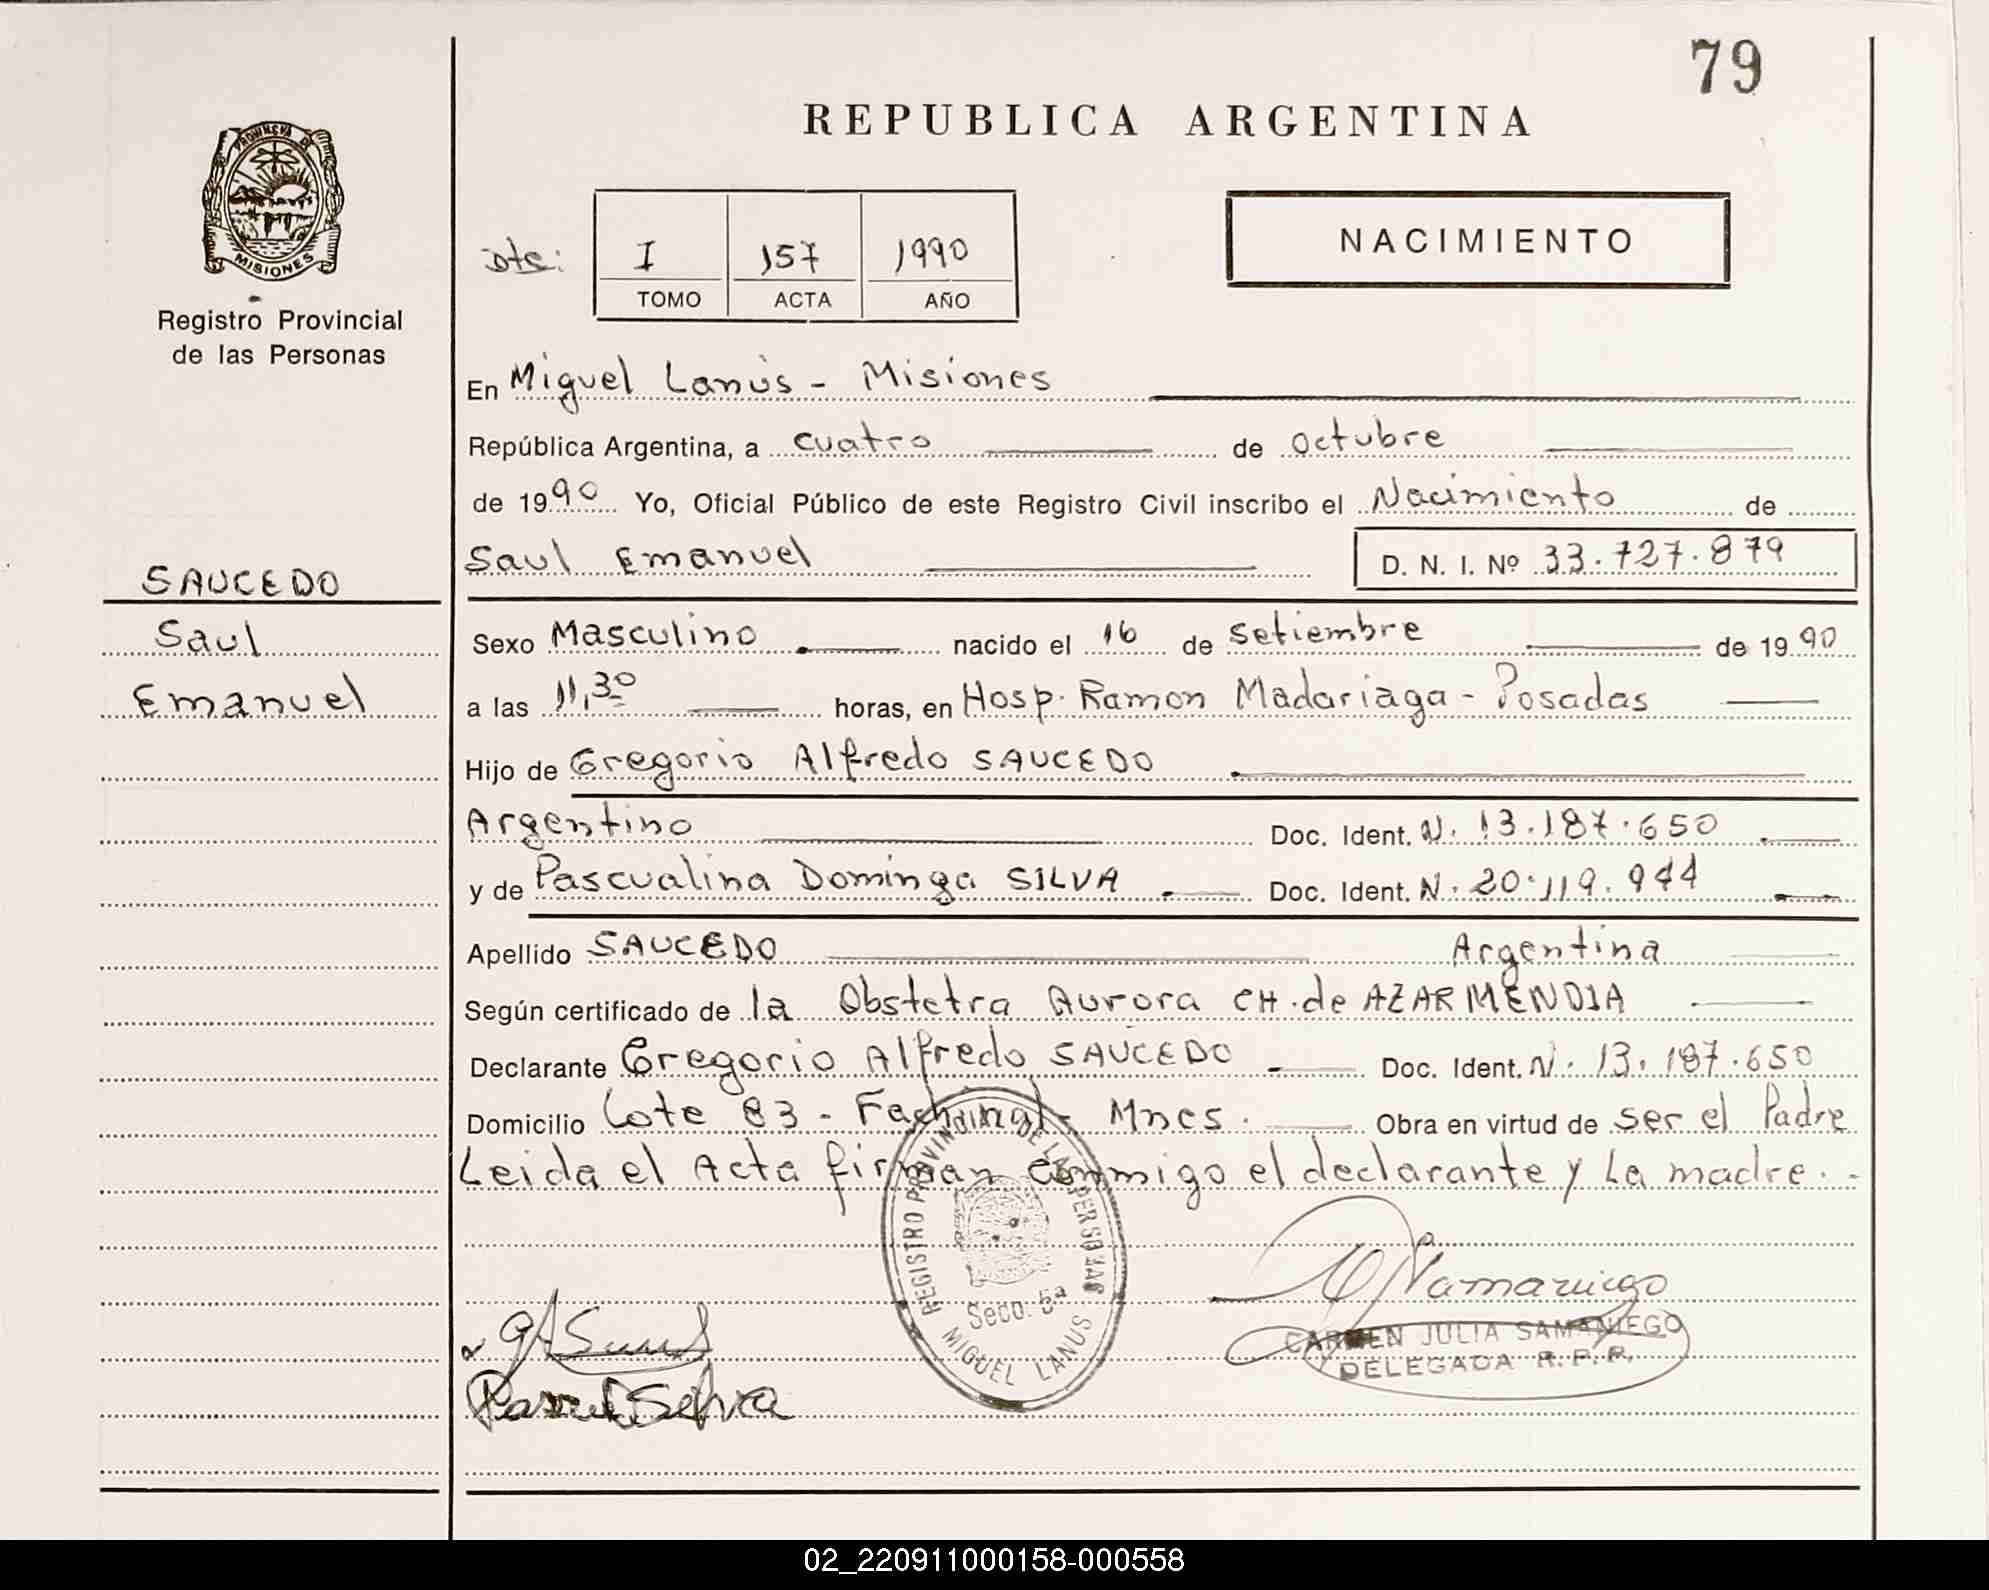 79
REPUBLICA ARGENTINA
PROVINCIA DE
MISIONES
Registro Provincial
de las Personas
Dto: I 157 1990
TOMO ACTA AÑO
NACIMIENTO
En Miguel Lanús - Misiones
República Argentina, a cuatro de octubre
de 1990 Yo, Oficial Público de este Registro Civil inscribo el Nacimiento de
Saul Emanuel D. N. I. Nº 33.727.879
SAUCEDO
Saul
Emanuel
Sexo Masculino nacido el 16 de Setiembre de 1990
a las 11,30 horas, en Hosp. Ramon Madariaga - Posadas
Hijo de Gregorio Alfredo SAUCEDO
Argentino Doc. Ident. N. 13.187.650
y de Pascualina Dominga SILVA Doc. Ident. N. 20.119.944
Apellido SAUCEDO Argentina
Según certificado de la Obstetra Aurora CH. de AZARMENDIA
Declarante Gregorio Alfredo SAUCEDO Doc. Ident. N. 13.187.650
Domicilio Lote 83 - Fachinal - Mnes. Obra en virtud de ser el Padre
Leida el Acta firman conmigo el declarante y La madre. -
REGISTRO PROVINCIAL DE LAS PERSONAS
Secc. 5ª
MIGUEL LANUS
Samaniego
CARMEN JULIA SAMANIEGO
DELEGADA R.P.P.
Silva
02_220911000158-000558